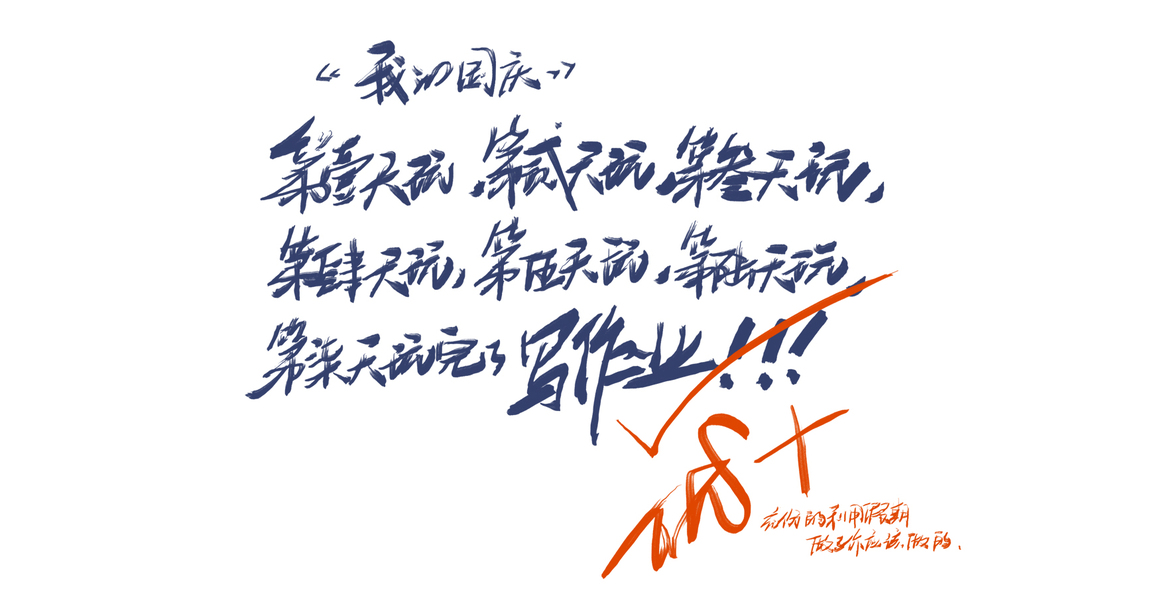 《我的国庆》
第壹天玩,第贰天玩,第叁天玩,
第肆天玩,第伍天玩,第陆天玩,
第柒天玩完了写作业!!!
充份的利用假期
做了你应该做的.